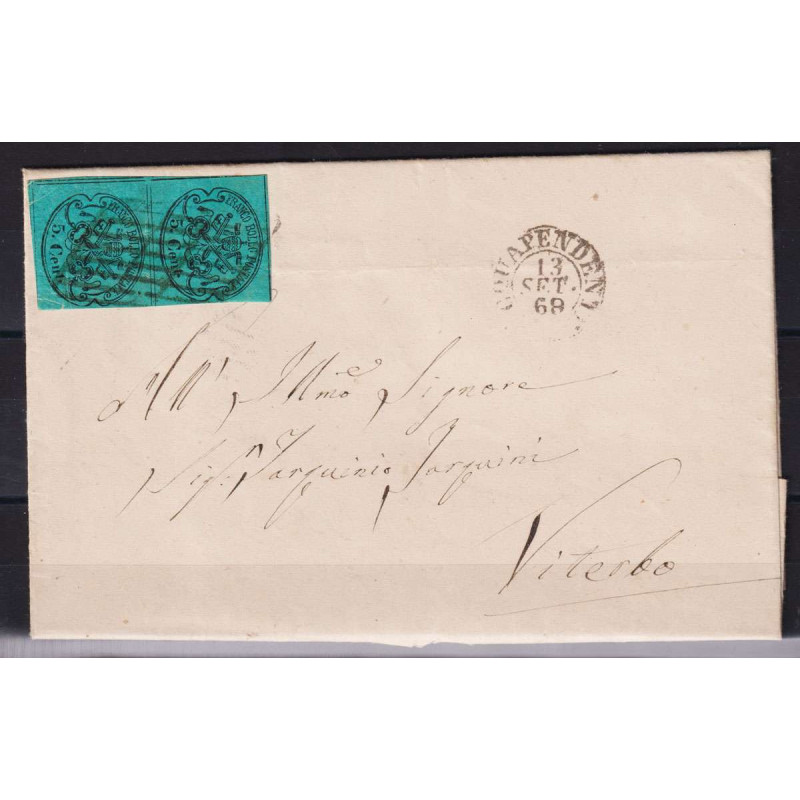 FRANCO BOLLO POSTALE
5 Cent
FRANCO BOLLO POSTALE
5 Cent
CQUAPENDENT
13
SET.
68
All' Illmo Signore
Sigr Tarquinio Tarquini
Viterbo